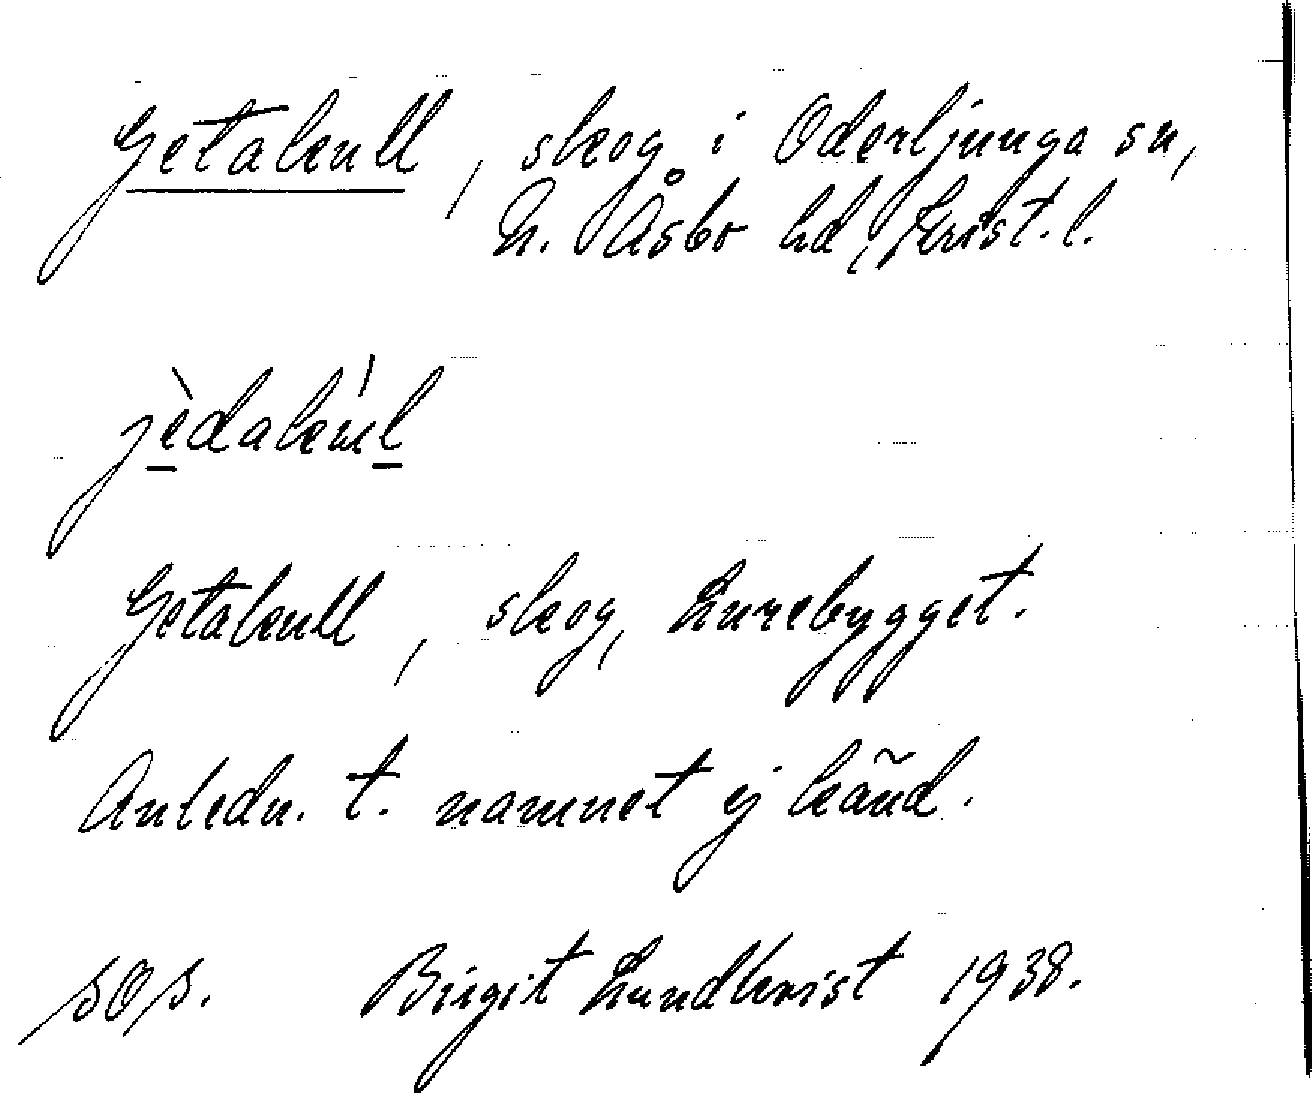 Getakull, skog i Oderljunga sn,
N. Åsbo hd, Krist. l.
jèdakúl
Getakull, skog, Lurebygget.
Anledn. t. namnet ej känd.
SOS. Birgit Lundkvist 1938.